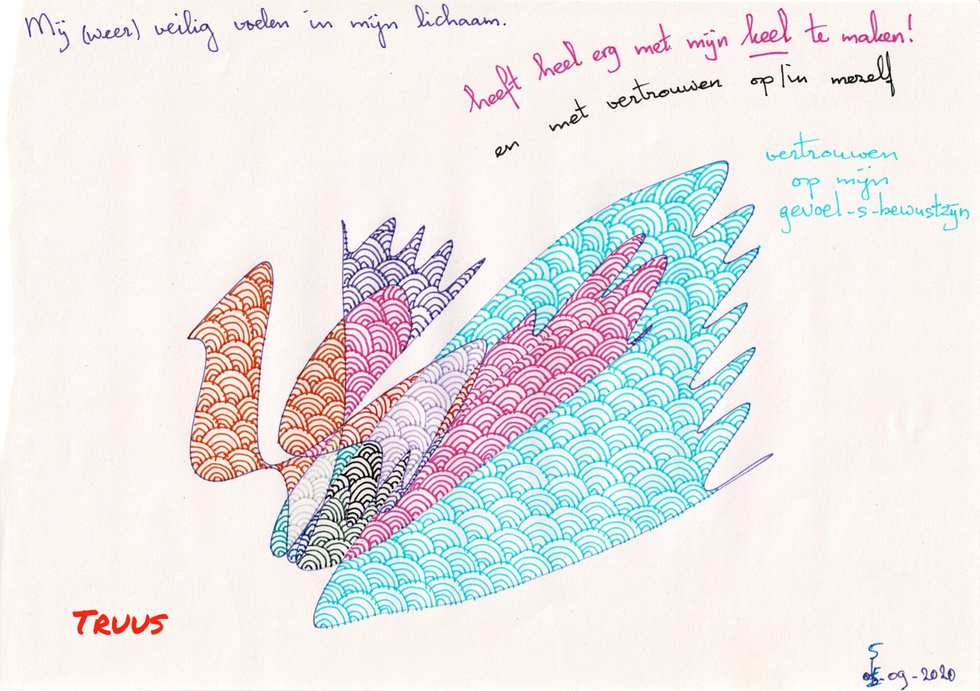 Mij (weer) veilig voelen in mijn lichaam.
heeft heel erg met mijn keel te maken!
en met vertrouwen op/in mezelf
vertrouwen
op mijn
gevoel-s-bewustzijn
TRUUS
-09-2020